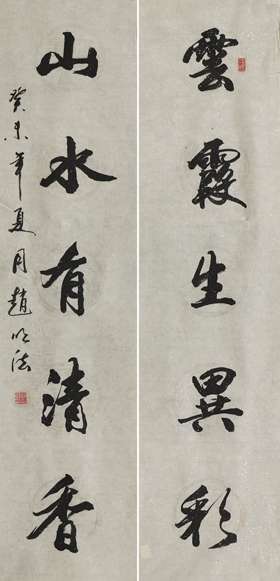 雲霞生異彩
山水有清香
癸未年夏月趙明法